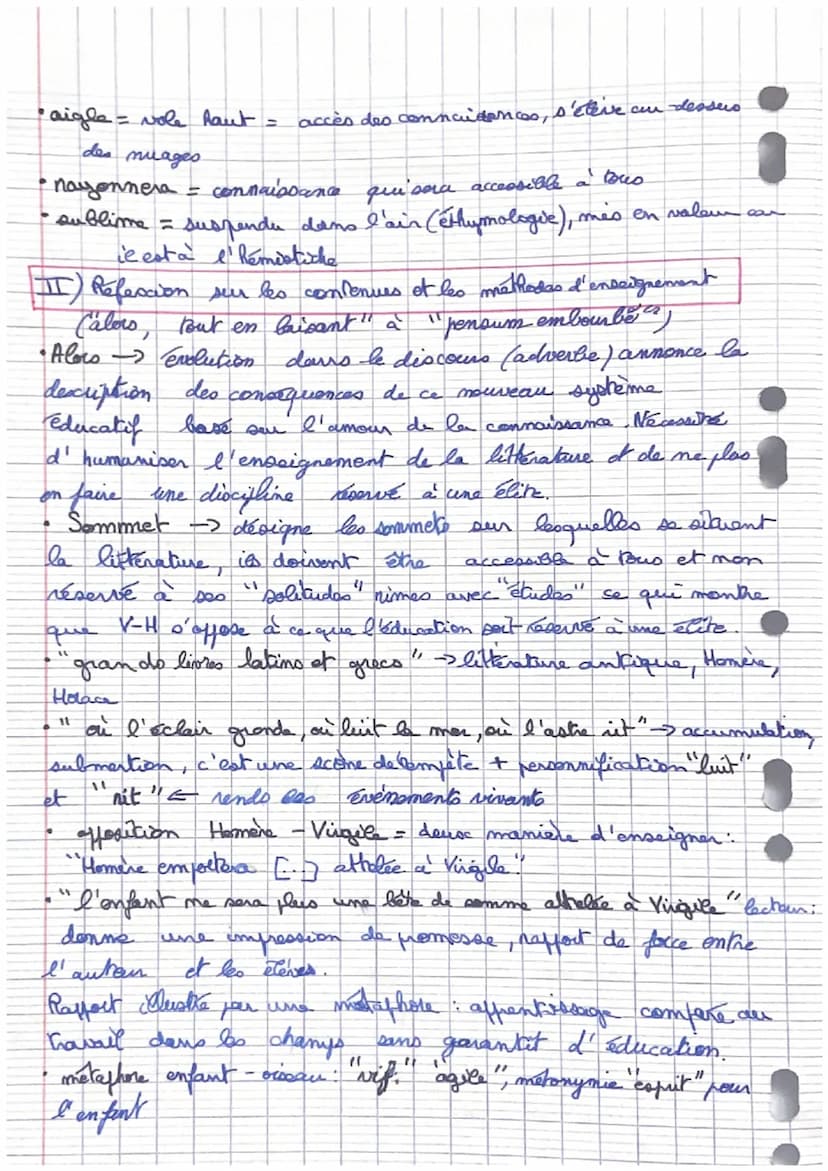 • aigle = vole haut = accès des connaissances, s'élève au-dessus
des nuages
• rayonnera = connaissance qui sera accessible à tous
• sublime = suspendu dans l'air (éthymologie), mis en valeur car
il est à l'hémistiche
II) Réflexion sur les contenues et les méthodes d'enseignement
("alors, tout en laisant" à "pensum embourbé")
• Alors → évolution dans le discours (adverbe) annonce la
description des conséquences de ce nouveau système
éducatif basé sur l'amour de la connaissance. Nécessité
d'humaniser l'enseignement de la littérature et de ne plus
en faire une discipline réservé à une élite.
• Sommet → désigne les sommets sur lesquelles se situent
la littérature, ils doivent être accessible à tous et non
réservé à ses "solitudes" rimes avec "études" se qui montre
que V-H s'oppose à ce que l'éducation soit réservé à une élite.
• "grands livres latins et grecs" → littérature antique, Homère,
Horace
• "où l'éclair gronde, où luit la mer, où l'astre rit" → accumulation,
submertion, c'est une scène de tempête + personnification "luit"
et "rit" ← rends ces événements vivants
• opposition Homère - Virgile = deux manière d'enseigner :
"Homère emportera [...] attelée à Virgile"
• "l'enfant ne sera plus une bête de somme attelée à Virgile" lecteur :
donne une impression de promesse, rapport de force entre
l'auteur et les élèves.
Rapport illustré par une métaphore : apprentissage comparé au
travail dans les champs sans garantit d'éducation.
• métaphore enfant - oiseau : "vif" "agile", métonymie "esprit" pour
l'enfant